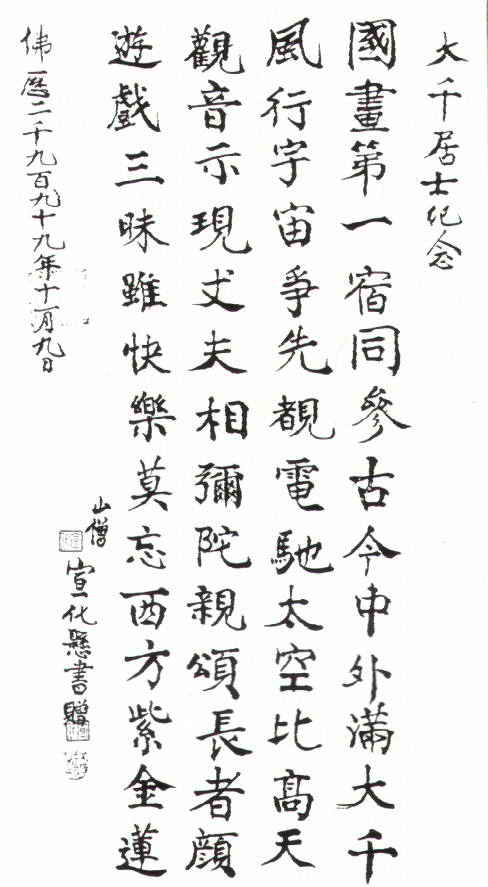 大千居士紀念
國畫第一宿同參古今中外滿大千
風行宇宙爭先覩電馳太空比髙天
觀音示現丈夫相彌陀親頌長者顏
遊戲三昧雖快樂莫忘西方紫金蓮
佛曆二千九百九十九年十一月九日
山僧
宣化懸書贈